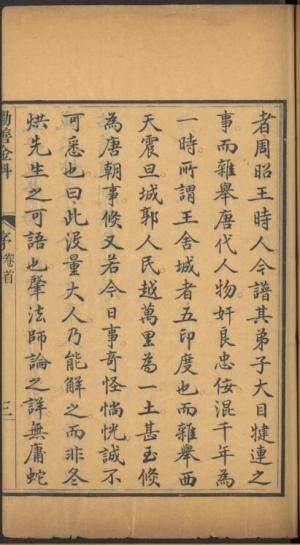 者周昭王時人今譜其弟子大目犍連之
事而雜舉唐代人物奸良忠佞混千年為
一時所謂王舍城者五印度也而雜舉西
天震旦城郭人民越萬里為一土甚至倏
為唐朝事倏又若今日事奇怪惝恍誠不
可悉也曰此沒量大人乃能解之而非冬
烘先生之可語也肇法師論之詳無庸蛇
勸善金科
序 卷首
三